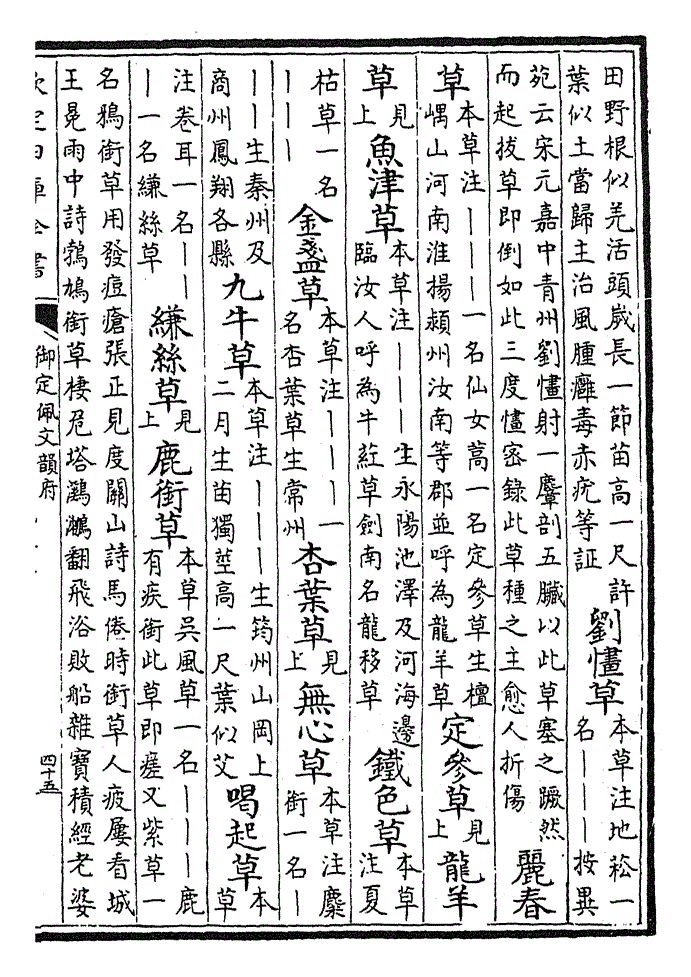 田野根似羌活頭歲長一節苗高一尺許葉似土當歸主治風腫癰毒赤疣等証劉㦎草本草注地菘一名丨丨丨按異
苑云宋元嘉中青州劉㦎射一麞剖五臟以此草塞之蹶然而起拔草即倒如此三度㦎密錄此草種之主愈人折傷麗春
草本草注丨丨丨一名仙女蒿一名定參草生檀嵎山河南淮揚潁州汝南等郡並呼為龍羊草定參草見上龍羊
草見上魚津草本草注丨丨丨生永陽池澤及河海邊臨汝人呼為牛葒草劍南名龍移草鐵色草本草注夏
枯草一名丨丨丨金盞草本草注丨丨丨一名杏葉草生常州杏葉草見上無心草本草注麋銜一名丨
丨丨生秦州及商州鳳翔各縣九牛草本草注丨丨丨生筠州山岡上二月生苗獨莖高一尺葉似艾喝起草本草
注卷耳一名丨丨丨一名縑絲草縑絲草見上鹿銜草本草吳風草一名丨丨丨鹿有疾銜此草即瘥又紫草一
名鴉銜草用發痘瘡張正見度關山詩馬倦時銜草人疲屢看城王冕雨中詩鶉鳩銜草棲危塔鸂鶒翻飛浴敗船雜寶積經老婆
欽定四庫全書
御定佩文韻府
四十五